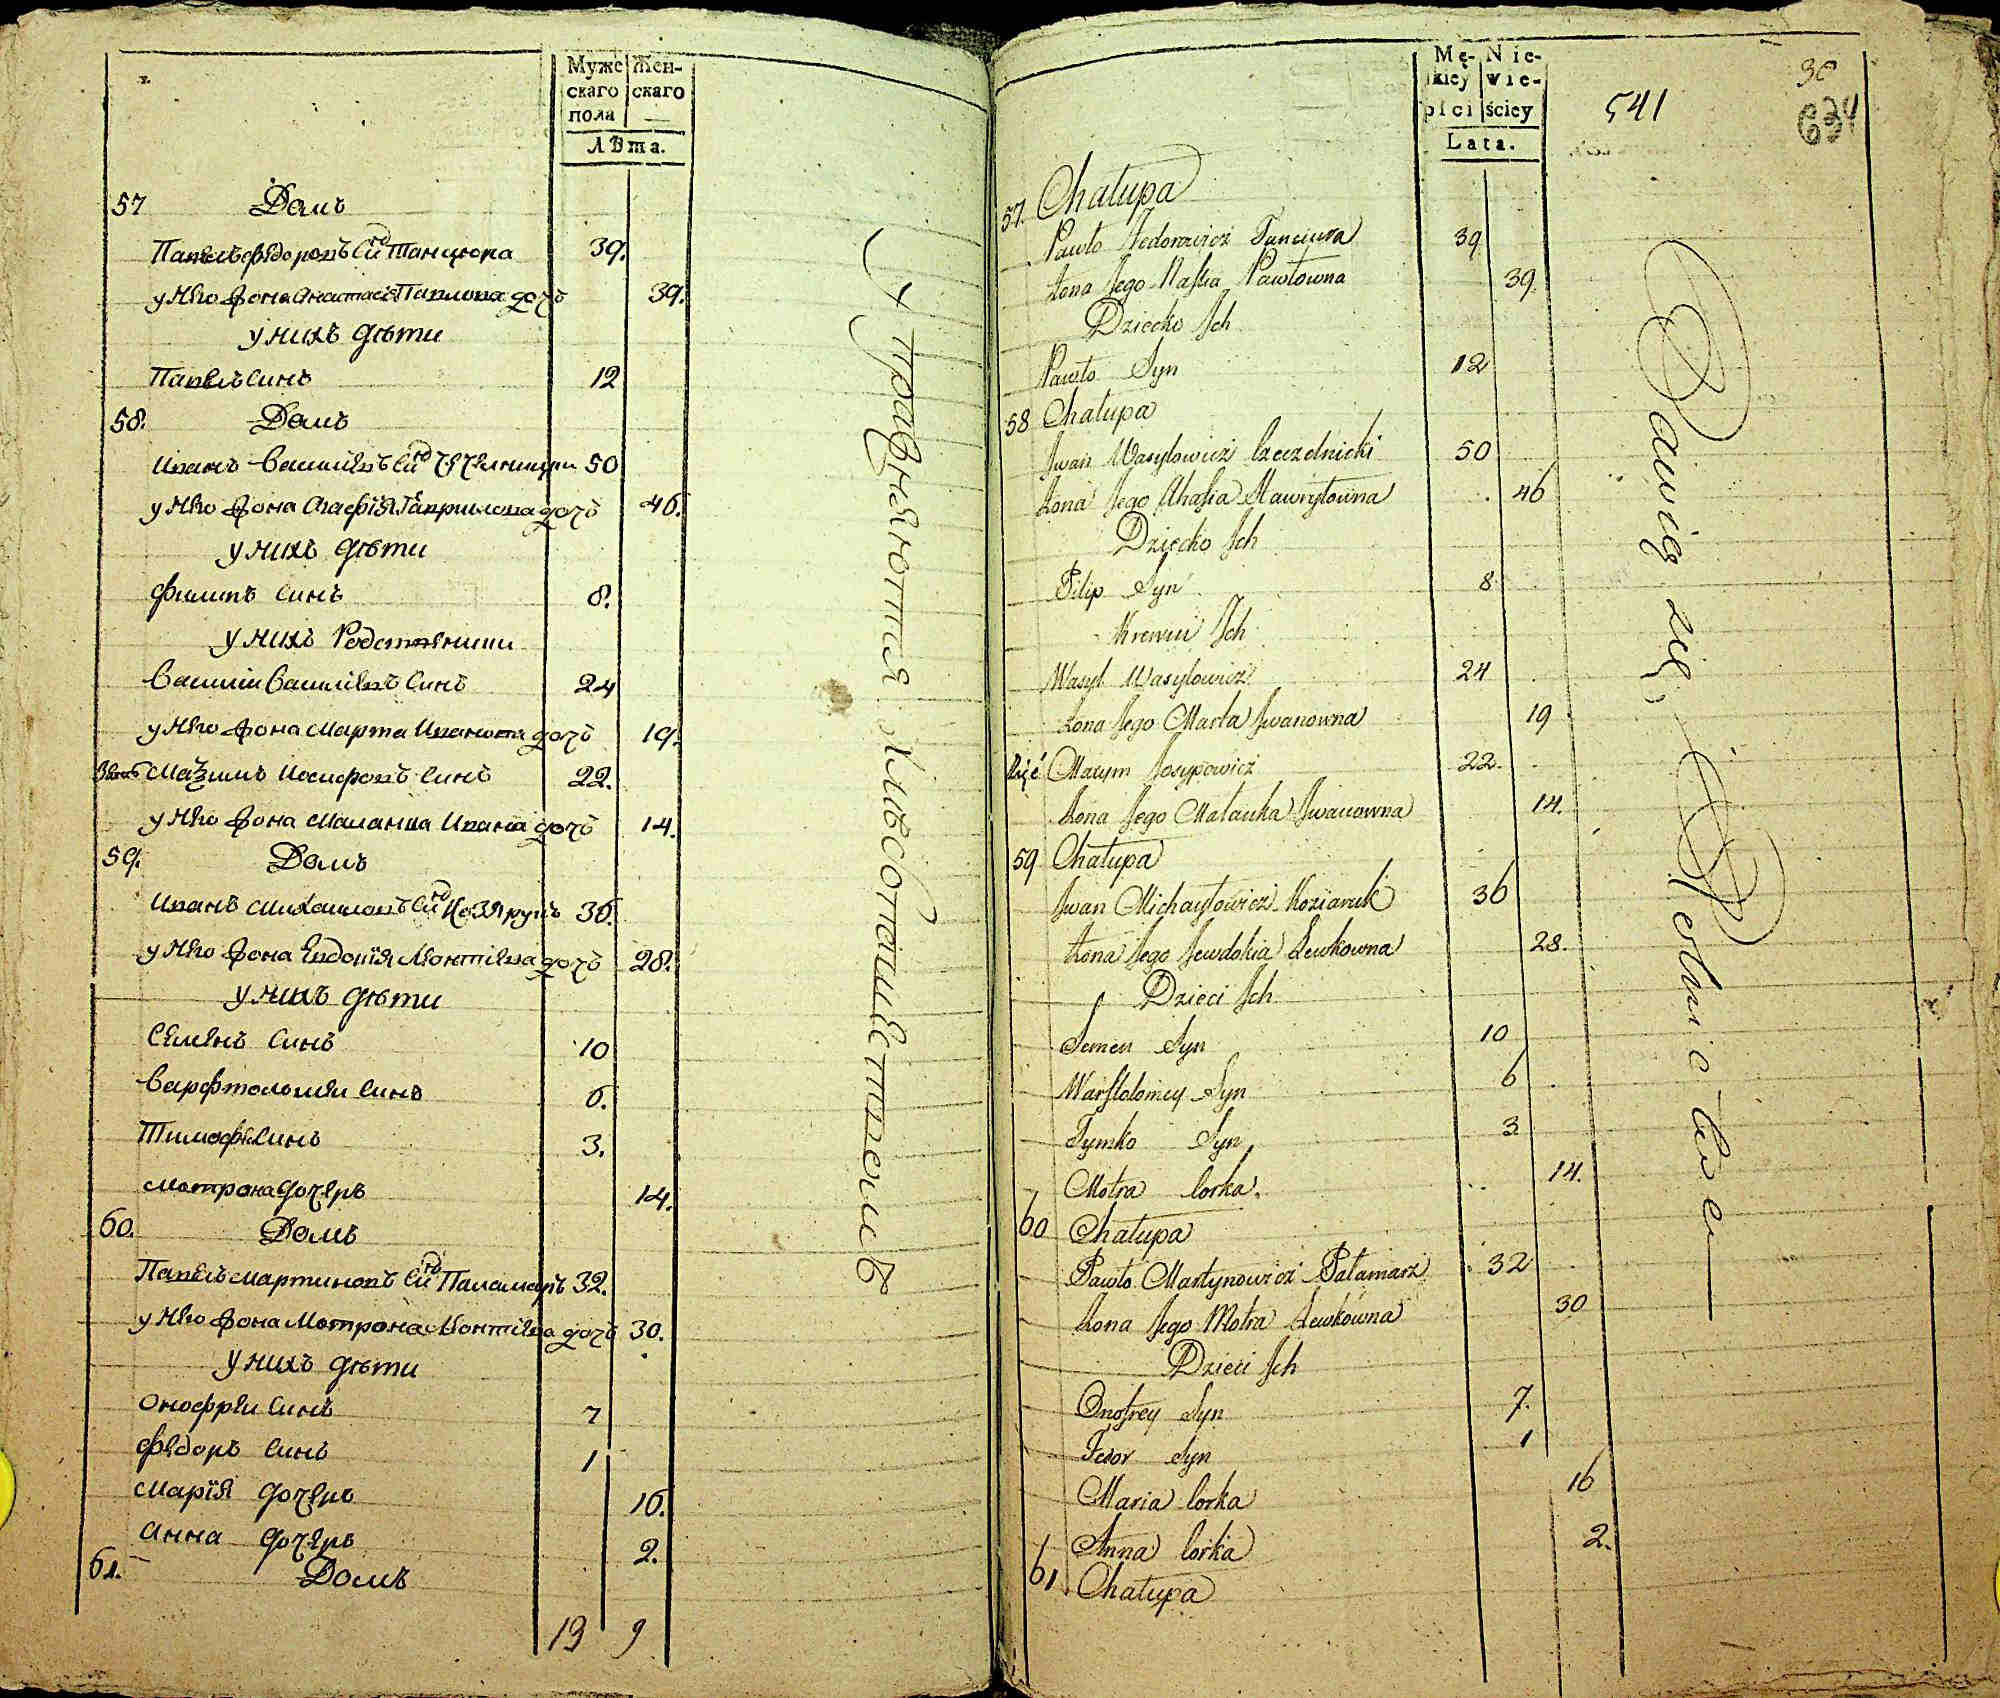 Муже
скаго
пола
Жен-
скаго
Лѣта.
57 Домъ
Павелъ Федоровъ Синъ Танцюра 39.
у Него Жона Анастасія Павлова дочь 39.
у нихъ дѣти
Павелъ Синъ 12
58. Домъ
Иванъ Василіевъ Синъ Чечелницки 50
у Него Жона Агафія Гаврилова дочь 46.
у нихъ дѣти
Филипъ Синъ 8.
у нихъ Родственики
Василій Василіевъ Синъ 24
у Него Жона Марта Иванова дочь 19.
Зять Маѯимъ Иосифовъ Синъ 22.
у Него Жона Маланка Ивана дочь 14.
59. Домъ
Иванъ Михаиловъ Синъ Козярукъ 36.
у Него Жона Евдокія Леонтіева дочь 28.
у нихъ дѣти
Семенъ Синъ 10
Варфтоломей Синъ 6.
Тимофей Синъ 3.
Мотрона дочерь 14.
60. Домъ
Павелъ Мартиновъ Синъ Паламарь 32.
у Него Жона Мотрона Леонтіева дочь 30.
у нихъ дѣти
Онофрей Синъ 7
Федоръ Синъ 1
Марія дочерь 16.
Анна дочерь 2.
61. Домъ
13 9
Упражняются Хлѣбопашетствомъ
Mę-
skiey
płci
Nie-
wie-
ściey
Lata.
541
30
634
57. Chałupa
Pawło Fedorowicz Tanciura 39
Żona Jego Nastia Pawłowna 39.
Dziecko Ich
Pawło Syn 12
58 Chałupa
Iwan Wasylowicz Czeczelnicki 50
Żona Jego Ahafia Hawryłowna 46
Dziecko Ich
Filip Syn 8
Krewni Ich
Wasyl Wasylowicz 24
Żona Jego Marta Iwanowna 19
Zięć Maxym Josypowicz 22.
Żona Jego Malanka Iwanowna 14.
59 Chałupa
Iwan Michayłowicz Koziaruk 36
Żona Jego Jewdokia Lewkowna 28.
Dzieci Ich
Semen Syn 10
Warftolomey Syn 6
Tymko Syn 3
Motra Corka. 14.
60 Chałupa
Pawło Martynowicz Pałamarz 32
Żona Jego Motra Lewkówna 30
Dzieci Ich
Onofrey Syn 7.
Fedor Syn 1
Maria Corka 16
Anna Corka 2.
61. Chałupa
Bawią się Rolnictwem